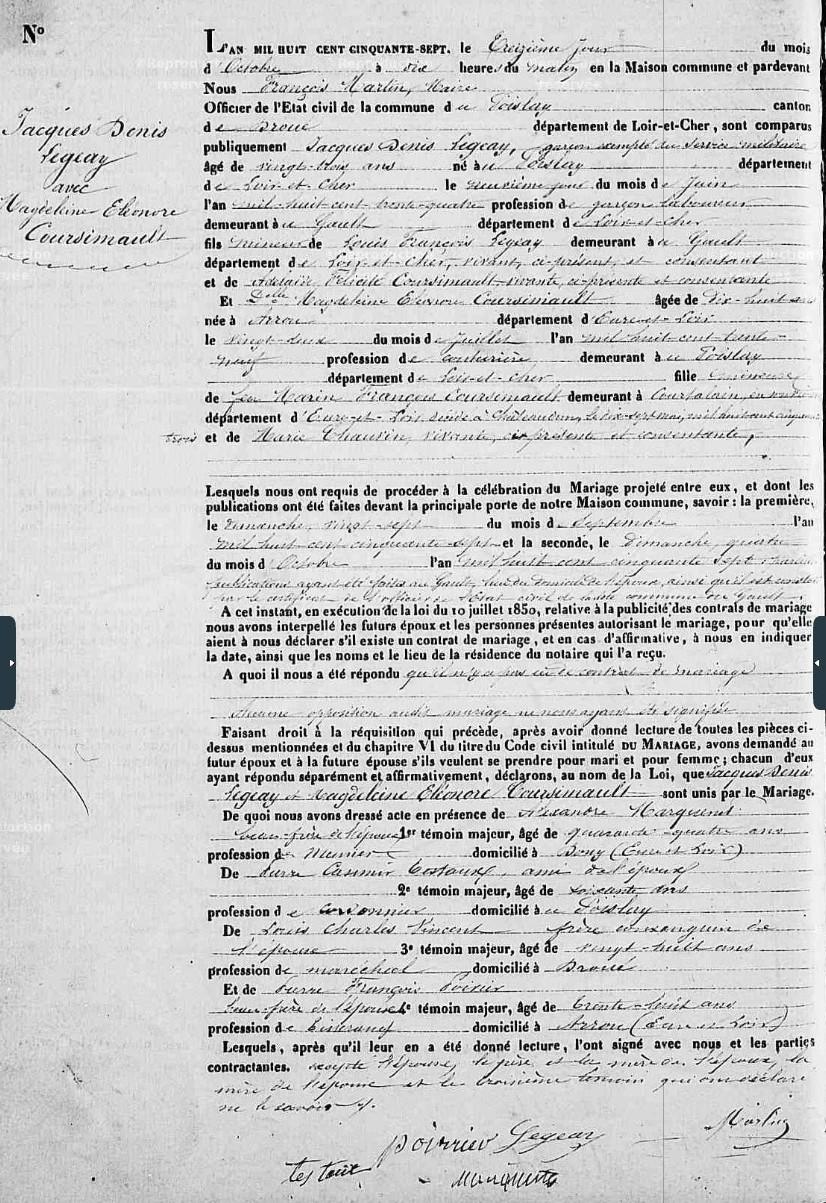 N°
Jacques Denis
Legeay
avec
Magdeleine Eléonore
Coursimault
L'AN MIL HUIT CENT CINQUANTE-SEPT. le Treizième jour du mois
d'Octobre à dix heures du matin en la Maison commune et pardevant
Nous François Martin, Maire
Officier de l'Etat civil de la commune d u Poislay canton
d e Droué département de Loir-et-Cher, sont comparus
publiquement Jacques Denis Legeay, garçon exempté du service militaire
âgé de vingt-trois ans né à u Poislay département
d e Loir-et-Cher le deuxième jour du mois d e Juin
l'an mil-huit-cent-trente-quatre profession d e garçon laboureur
demeurant à u Gault département d e Loir-et-Cher
fils mineur de Louis François Legeay demeurant à u Gault
département d e Loir-et-Cher, vivant, ci-présent, et consentant
et de Adelaide Félicité Coursimault vivante, ci-présente et consentante
Et Delle Magdeleine Eléonore Coursimault âgée de Dix-huit ans
née à Arrou département d'Eure-et-Loir
le vingt-deux du mois de Juillet l'an mil huit cent trente-
neuf profession d e couturière demeurant à u Poislay
département d e Loir-et-Cher fille mineure
de feu Marin François Coursimault demeurant à Courtalain,
département d'Eure-et-Loir décédé à Châteaudun, le dix-sept mai, mil huit cent cinquante
trois et de Marie Chauvin, vivante, ci-présente et consentante,
Lesquels nous ont requis de procéder à la célébration du Mariage projeté entre eux, et dont les
publications ont été faites devant la principale porte de notre Maison commune, savoir : la première,
le Dimanche, vingt-sept du mois de Septembre l'an
mil huit cent cinquante sept et la seconde, le Dimanche, quatre
du mois d'Octobre l'an mil huit cent cinquante sept, pareilles
publications ayant été faites au Gault, lieu du domicile de l'époux, ainsi qu'il est constaté
par le certificat de l'officier de l'état civil de ladite commune du Gault.
A cet instant, en exécution de la loi du 10 juillet 1850, relative à la publicité des contrats de mariage
nous avons interpellé les futurs époux et les personnes présentes autorisant le mariage, pour qu'elle
aient à nous déclarer s'il existe un contrat de mariage, et en cas d'affirmative, à nous en indiquer
la date, ainsi que les noms et le lieu de la résidence du notaire qui l'a reçu.
A quoi il nous a été répondu qu'il n'y a pas eu de contrat de mariage
Aucune opposition audit mariage ne nous ayant été signifiée
Faisant droit à la réquisition qui précède, après avoir donné lecture de toutes les pièces ci-
dessus mentionnées et du chapitre VI du titre du Code civil intitulé DU MARIAGE, avons demandé au
futur époux et à la future épouse s'ils veulent se prendre pour mari et pour femme ; chacun d'eux
ayant répondu séparément et affirmativement, déclarons, au nom de la Loi, que Jacques Denis
Legeay et Magdeleine Eléonore Coursimault sont unis par le Mariage.
De quoi nous avons dressé acte en présence de Alexandre
beau-frère de l'époux 1er témoin majeur, âgé de quarante-quatre ans
profession d e Meunier domicilié à (Eure et Loir)
De Pierre Casimir ami de l'époux
2e témoin majeur, âgé de soixante ans
profession d e cordonnier domicilié à u Poislay
De Louis Charles Vincent frère consanguin de
l'épouse 3e témoin majeur, âgé de vingt-huit ans
profession de maréchal domicilié à Droué
Et de Pierre François Poirier
beau-frère de l'épouse 4e témoin majeur, âgé de trente-huit ans
profession d e Tisserand domicilié à Arrou (Eure et Loir)
Lesquels, après qu'il leur en a été donné lecture, l'ont signé avec nous et les parties
contractantes. excepté l'épouse, le père et la mère de l'époux, la
mère de l'épouse et le troisième témoin qui ont déclaré
ne le savoir %.
Martin
poirrier Legeay
testaut